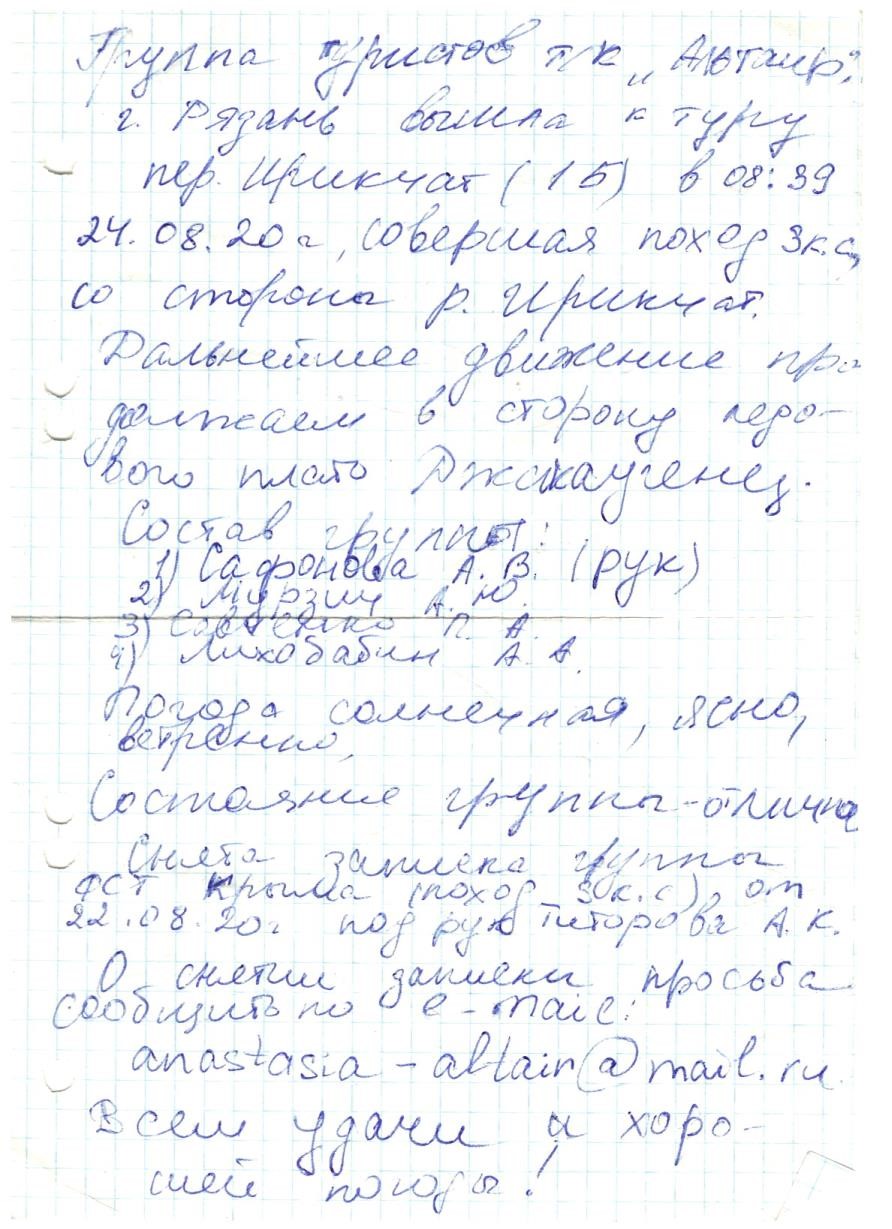 Группа туристов т/к „Альтаир",
г. Рязань вышла к туру
пер. Ирикчат (1Б) в 08:39
24.08.20г, совершая поход 3к.с,
со стороны р. Ирикчат.
Дальнейшее движение про
должаем в сторону ледо-
вого плато Джикаугенец.
Состав группы:
1) Сафонова А. В. (рук)
2) Мурзич А. Ю.
3) Савченко П. А.
4) Лихобабин А. А.
Погода солнечная, ясно,
ветренно,
Состояние группы-отлично
Снята записка группы
ФСТ Крыма (поход 3 к.с), от
22.08.20г под рук Титорова А. К.
О снятии записки просьба
сообщить по e-mail:
anastasia-altair@mail.ru
Всем удачи и хоро-
шей погоды!